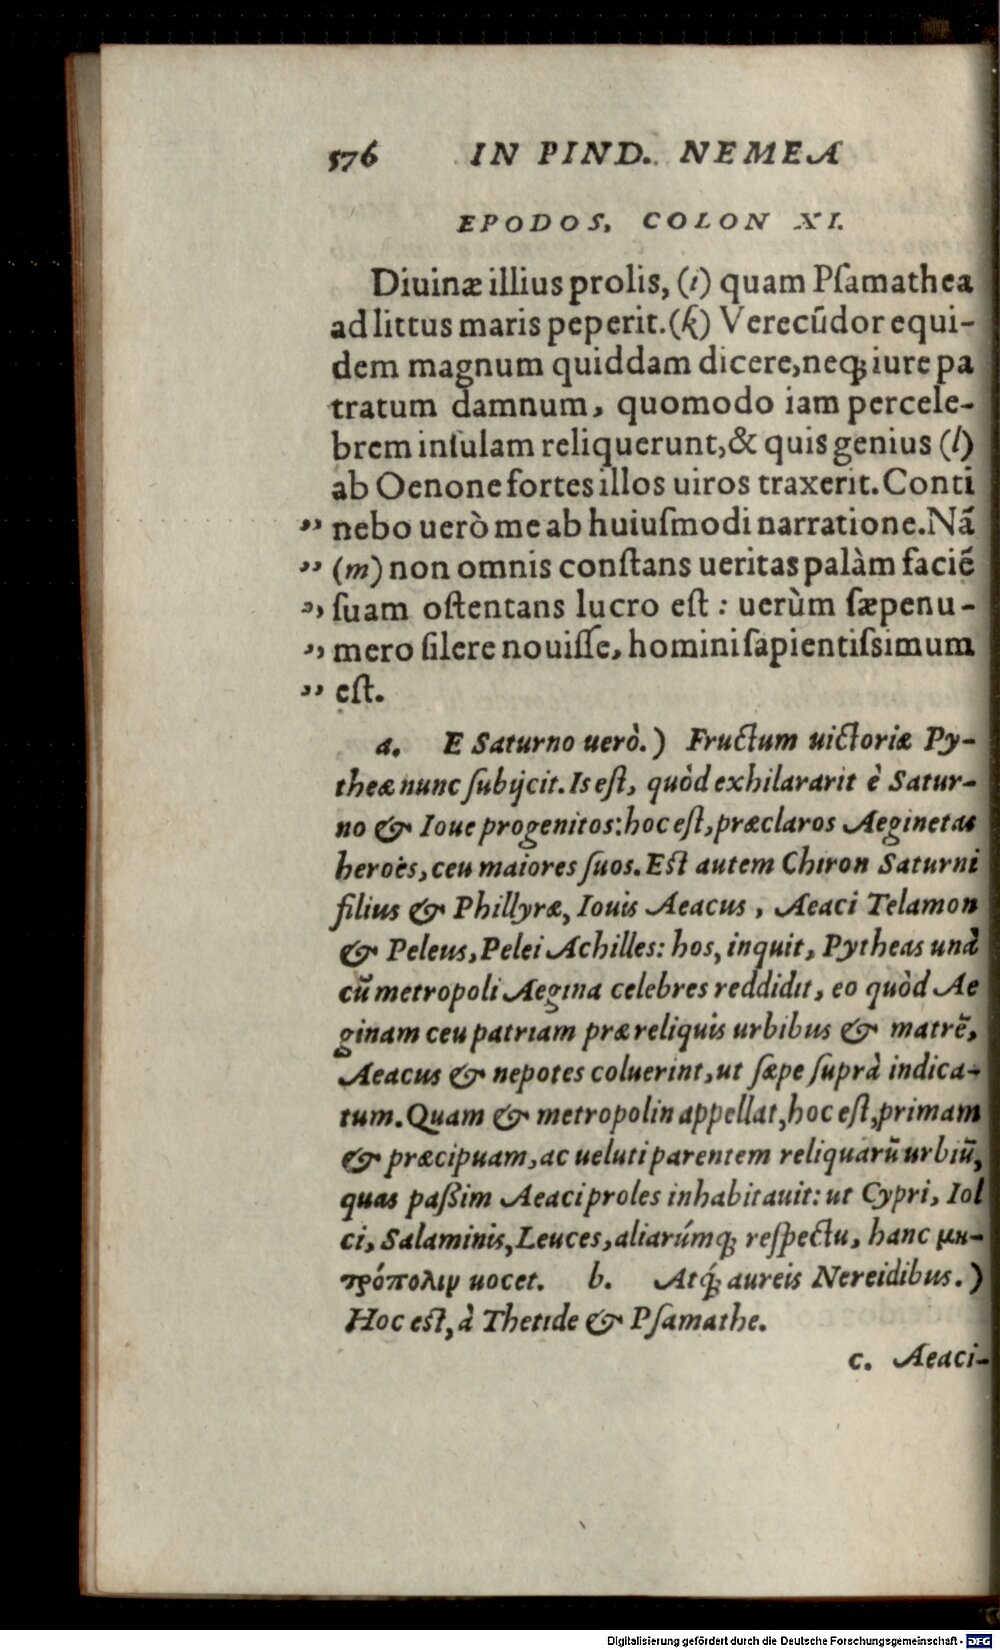 576 IN PIND. NEMEA
EPODOS, COLON XI.
Diuinæ illius prolis, (i) quam Pſamathea
ad littus maris peperit. (k) Verecũdor equi-
dem magnum quiddam dicere, neq; iure pa
tratum damnum, quomodo iam percele-
brem inſulam reliquerunt, & quis genius (l)
ab Oenone fortes illos uiros traxerit. Conti
” nebo uerò me ab huiuſmodi narratione. Nã
” (m) non omnis conſtans ueritas palàm faciẽ
” ſuam oſtentans lucro eſt : uerùm ſæpenu-
” mero ſilere nouiſſe, homini ſapientiſsimum
” eſt.
a. E Saturno uerò.) Fructum uictoriæ Py-
theæ nunc ſubijcit. Is eſt, quòd exhilararit è Satur-
no & Ioue progenitos: hoc eſt, præclaros Aeginetas
heroës, ceu maiores ſuos. Eſt autem Chiron Saturni
filius & Phillyræ, Iouis Aeacus, Aeaci Telamon
& Peleus, Pelei Achilles: hos, inquit, Pytheas unà
cũ metropoli Aegina celebres reddidit, eo quòd Ae
ginam ceu patriam præ reliquis urbibus & matrẽ,
Aeacus & nepotes coluerint, ut ſæpe ſuprà indica-
tum. Quam & metropolin appellat, hoc eſt, primam
& præcipuam, ac ueluti parentem reliquarũ urbiũ,
quas paßim Aeaci proles inhabitauit: ut Cypri, Iol
ci, Salaminis, Leuces, aliarúmq; reſpectu, hanc μη-
τρόπολιν uocet. b. Atq́; aureis Nereidibus.)
Hoc eſt, à Thetide & Pſamathe.
c. Aeaci-
Digitalisierung gefördert durch die Deutsche Forschungsgemeinschaft - DFG